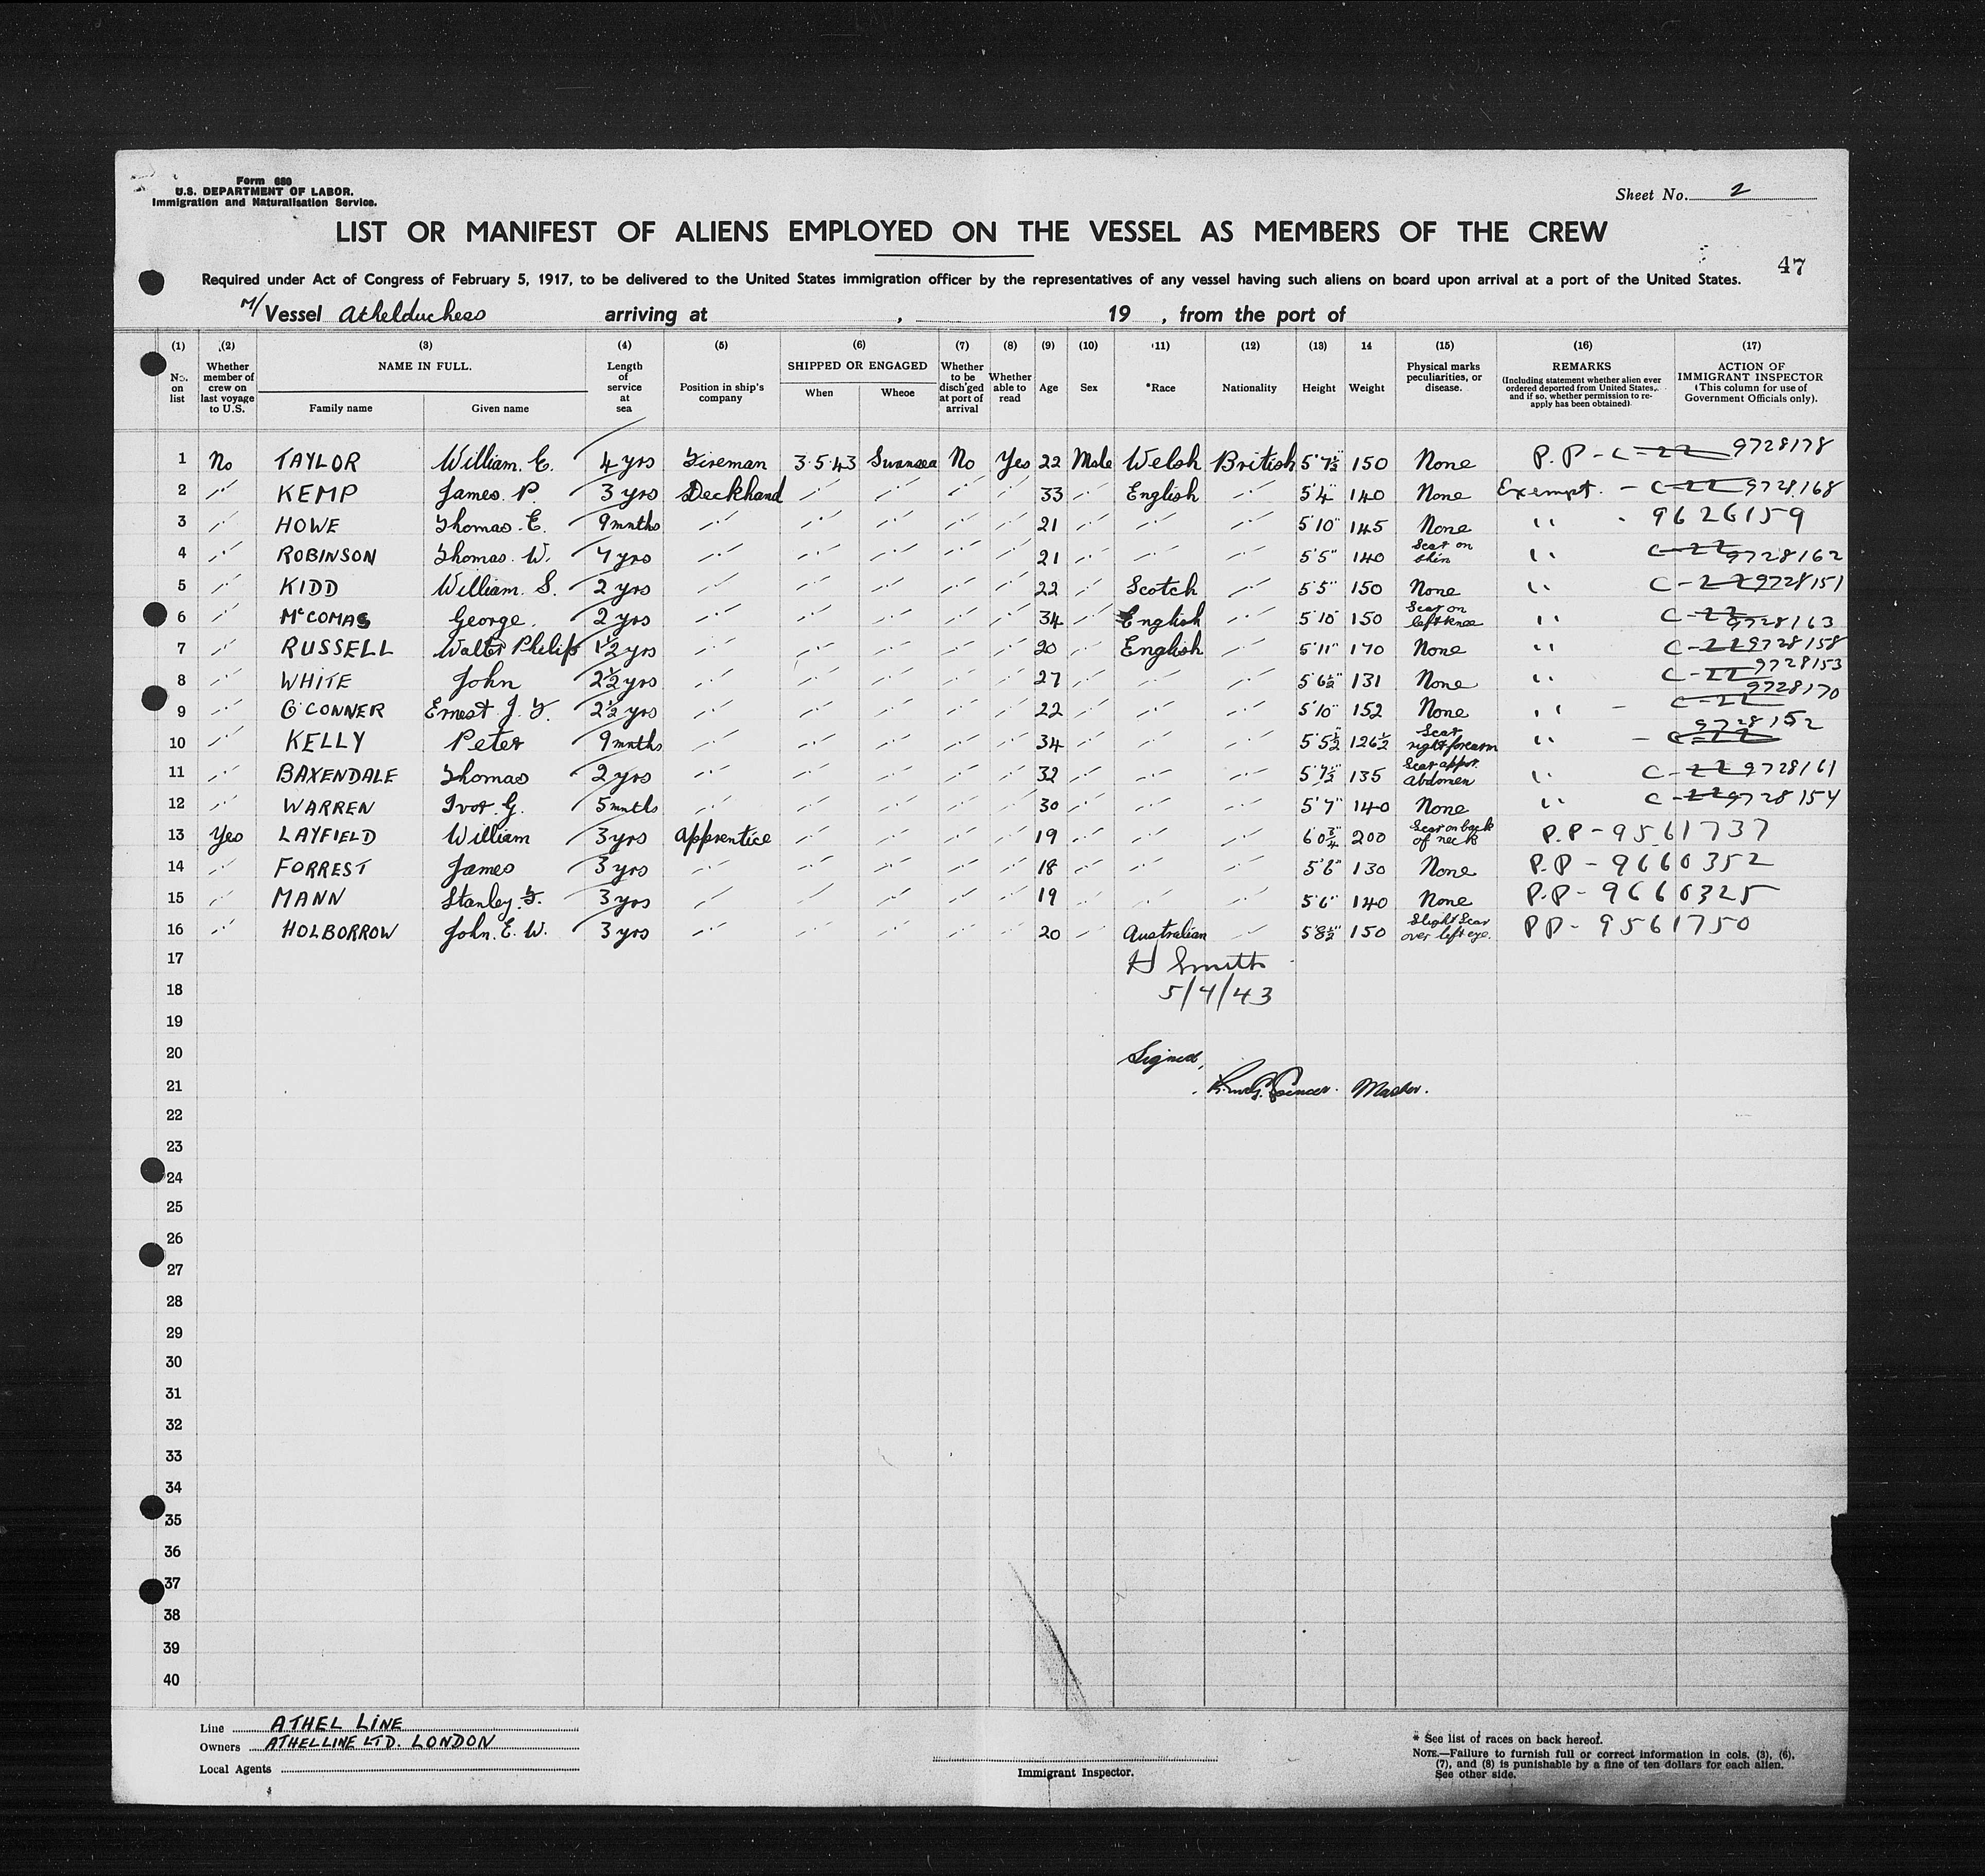 Form 680
U.S. DEPARTMENT OF LABOR.
Immigration and Naturalisation Service.
Sheet No. 2
LIST OR MANIFEST OF ALIENS EMPLOYED ON THE VESSEL AS MEMBERS OF THE CREW
47
Required under Act of Congress of February 5, 1917, to be delivered to the United States immigration officer by the representatives of any vessel having such aliens on board upon arrival at a port of the United States.
M/ Vessel Athelduchess arriving at , 19 , from the port of
(1) (2) (3) (4) (5) (6) (7) (8) (9) (10) (11) (12) (13) 14 (15) (16) (17)
No. on list
Whether member of crew on last voyage to U.S.
NAME IN FULL.
Family name
Given name
Length of service at sea
Position in ship's company
SHIPPED OR ENGAGED
When
Wheoe
Whether to be disch'ged at port of arrival
Whether able to read
Age
Sex
*Race
Nationality
Height
Weight
Physical marks peculiarities, or disease.
REMARKS
(Including statement whether alien ever ordered deported from United States, and if so, whether permission to re-apply has been obtained)
ACTION OF IMMIGRANT INSPECTOR
(This column for use of Government Officials only).
1 No TAYLOR William. E. 4 yrs Fireman 3.5.43 Swansea No Yes 22 Male Welsh British 5'7½" 150 None P.P - C-22 9728178
2 " KEMP James. P. 3 yrs Deckhand " " " " 33 " English " 5'4" 140 None Exempt. - C-22 9728168
3 " HOWE Thomas. E. 9mnths " " " " " 21 " " " 5'10" 145 None " - 9626159
4 " ROBINSON Thomas. W. 4 yrs " " " " " 21 " " " 5'5" 140 Scar on shin " C-22 9728162
5 " KIDD William. S. 2 yrs " " " " " 22 " Scotch " 5'5" 150 None " C-22 9728151
6 " McCOMAS George. 2 yrs " " " " " 34 " English " 5'10" 150 Scar on left knee " C-22 9728163
7 " RUSSELL Walter Philip 1½ yrs " " " " " 20 " English " 5'11" 170 None " C-22 9728158
8 " WHITE John 2½ yrs " " " " " 27 " " " 5'6½" 131 None " C-22 9728153
9 " O'CONNER Ernest J. F. 2½ yrs " " " " " 22 " " " 5'10" 152 None " - C-22 9728170
10 " KELLY Peter 9mnths " " " " " 34 " " " 5'5½" 126½ Scar right forearm " - C-22 9728152
11 " BAXENDALE Thomas 2 yrs " " " " " 32 " " " 5'7½" 135 Scar appx. Abdomen " C-22 9728161
12 " WARREN Ivor G. 5mnths " " " " " 30 " " " 5'7" 140 None " C-22 9728154
13 Yes LAYFIELD William 3 yrs Apprentice " " " " 19 " " " 6'0¾" 200 Scar on back of neck P.P - 9561737
14 " FORREST James 3 yrs " " " " " 18 " " " 5'8" 130 None P.P - 9660352
15 " MANN Stanley. F. 3 yrs " " " " " 19 " " " 5'6" 140 None P.P - 9660325
16 " HOLBORROW John. E. W. 3 yrs " " " " " 20 " Australian " 5'8½" 150 Slight Scar over left eye. PP - 9561750
17 H Smith
18 5/4/43
19
20 Signed,
21 Master.
22
23
24
25
26
27
28
29
30
31
32
33
34
35
36
37
38
39
40
Line ATHEL LINE
Owners ATHEL LINE LTD. LONDON
Local Agents
Immigrant Inspector.
* See list of races on back hereof.
NOTE.—Failure to furnish full or correct information in cols. (3), (6), (7), and (8) is punishable by a fine of ten dollars for each alien. See other side.